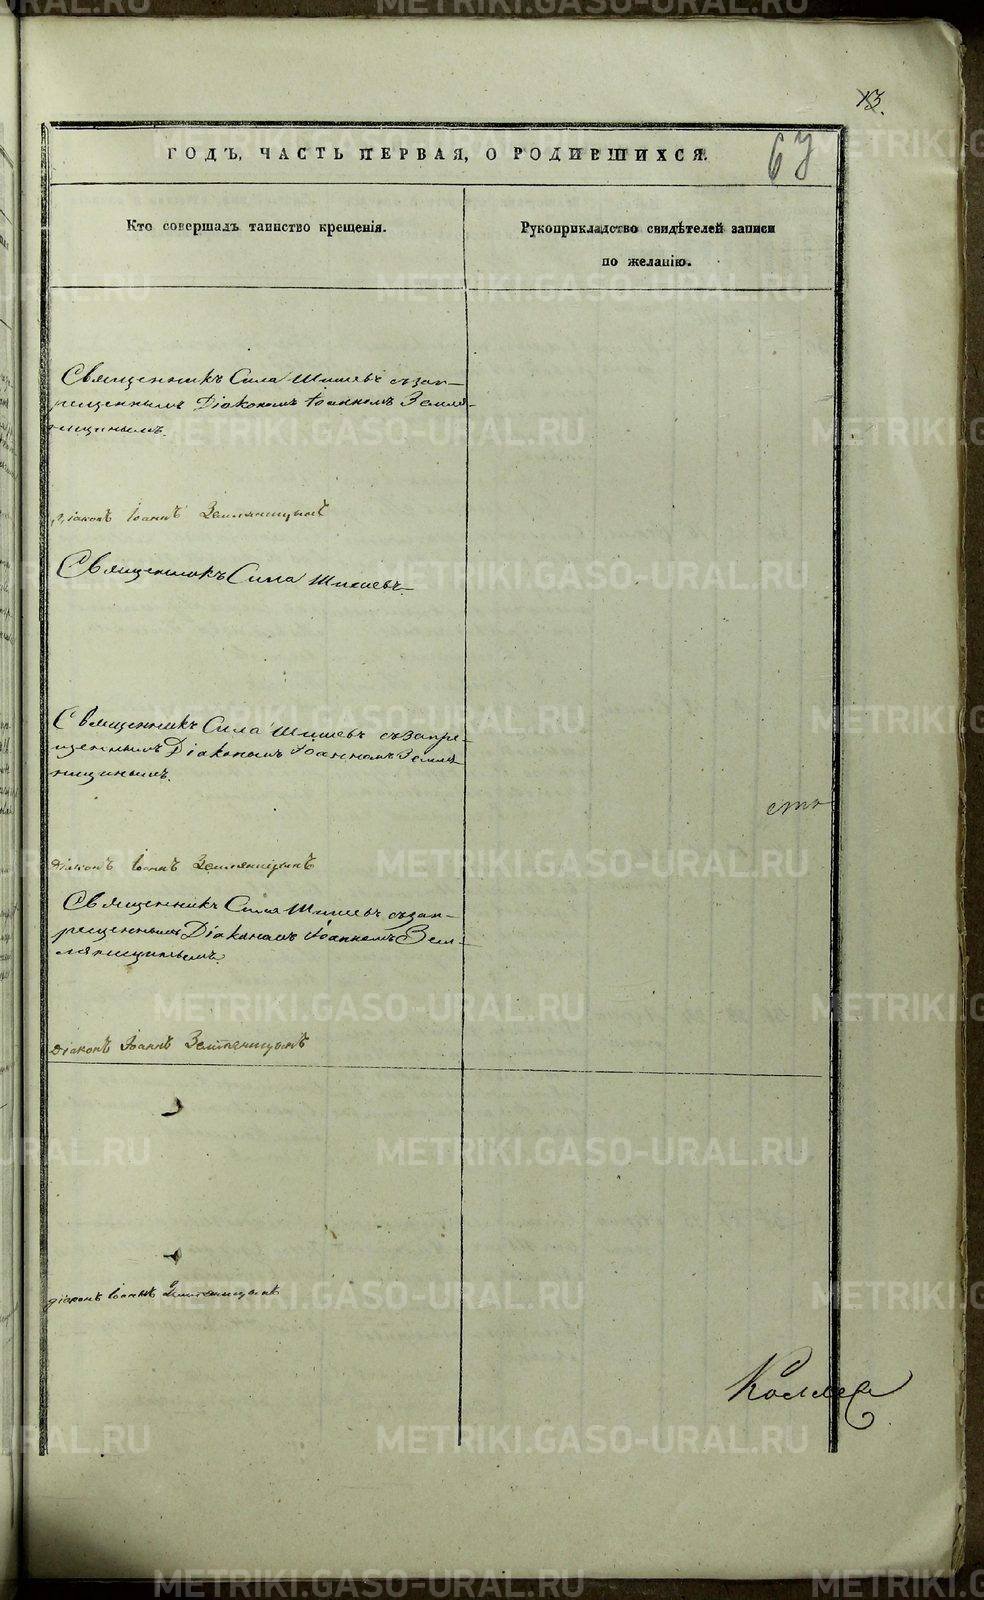 13.
67
ГОДЪ, ЧАСТЬ ПЕРВАЯ, О РОДИВШИХСЯ.
Кто совершалъ таинство крещенія.
Рукоприкладство свидѣтелей записи
по желанію.
Священникъ Сила Шишевъ съ зап-
рещеннымъ Діакономъ Іоанномъ Земля-
ницинымъ.
Діаконъ Іоаннъ Земляницынъ
Священникъ Сила Шишевъ.
Священникъ Сила Шишевъ съ запре-
щеннымъ Діакономъ Іоанномъ Земля-
ницинымъ.
сто
Діаконъ Іоаннъ Земляницынъ
Священникъ Сила Шишевъ съ зап-
рещеннымъ Діакономъ Іоанномъ Зем-
ляницинымъ.
Діаконъ Іоаннъ Земляницынъ
діаконъ Іоаннъ Земляницынъ
METRIKI.GASO-URAL.RU